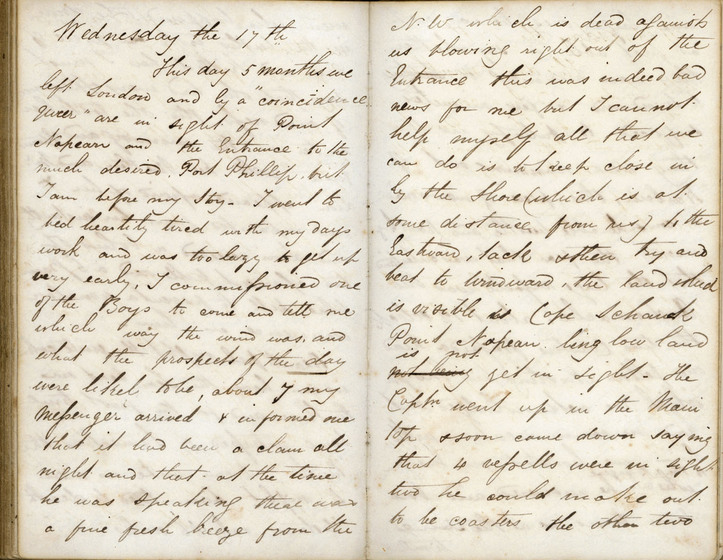 Wednesday the 17th
This day 5 months we
left London and by a "coincidence
queer" are in sight of Point
Napean and the Entrance to the
much desired Port Phillip. but
I am before my Story - I went to
bed heartily tired with my days
work and was too lazy to get up
very early, I commissioned one
of the Boys to come and tell me
which way the wind was, and
what the prospects of the day
were likel to be, about 7 my
Messenger arrived & informed me
that it had been a clam all
night and that at the time
he was speaking there was
a fine fresh beeze from the
N.W which is dead against
us blowing right out of the
Entrance this was indeed bad
news for me but I cannot
help myself all that we
can do is to keep close in
by the Shore (which is at
some distance from us) to the
Eastward, tack & then try and
beat to windward, the land which
is visible is Cape Schank
Point Napean, being low land
is not
not being yet in sight - The
Captn went up in the Main
top & soon came down saying
that 4 vessells were in sight
two he could make out
to be coasters the other two